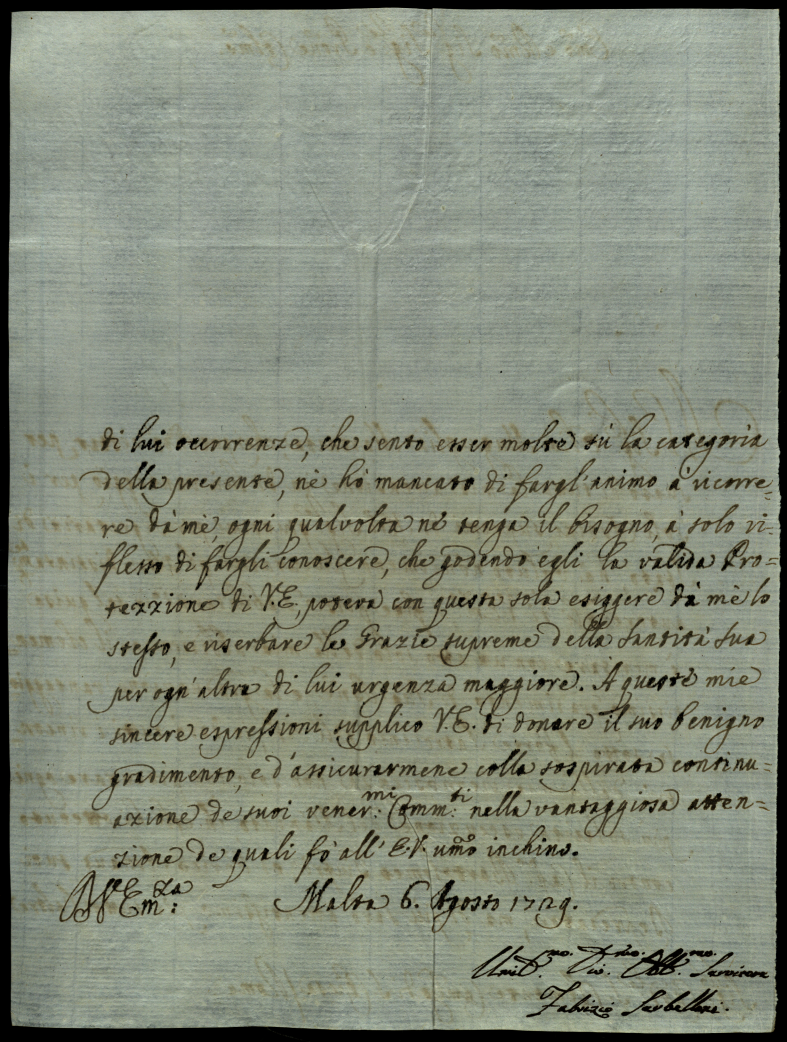 di lui occorrenze, che sento esser molte sù la categoria
della presente, nè hò mancato di fargl'animo à ricorre=
re dà mè, ogni qualvolta nè tenga il bisogno, à solo ri=
flesso di fargli conoscere, che godendo egli la valida Pro=
tezzione di V.E, poteva con questa sola esiggere dà mè lo
stesso, e riserbare le Grazie supreme della Santità Sua
per ogn'altra di lui urgenza maggiore. A queste mie
sincere espressioni supplico V.E. di donare il suo benigno
gradimento, e d'assicurarmene colla sospirata continu=
azione de suoi vener:mi Comm:ti nella vantaggiosa atten=
zione de quali fò all'E.V. umo inchino.
Em:za Malta 6. Agosto 1729.
Umil.mo Div.mo Obb.mo Servitore
Fabrizio Serbelloni.